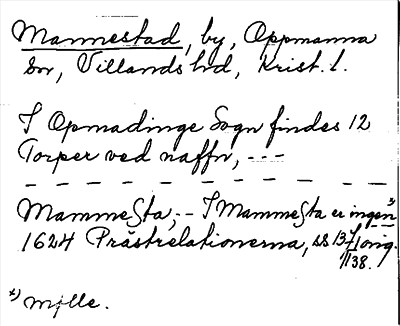 Mannestad, by, Oppmanna
sn, Villands hd, Krist. l.
I Opmadinge Sogn findes 12
Torper ved naffn, ---
MammeSta, -- I MammeSta er ingen x)
1624 Prästrelationerna, ss 137 / orig.
1138.
x) Mølle.